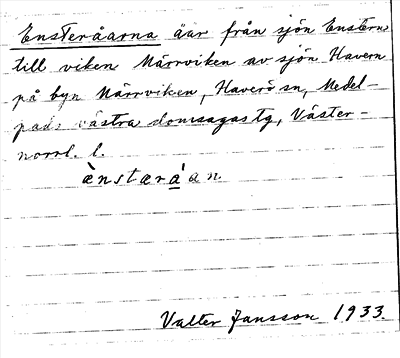 Ensteråarna åar från sjön Enstern
till viken Närrviken av sjön Havern
på byn Närrviken, Haverö sn, Medel-
pads västra domsagas tg, Väster-
norrl. l.
ènstæråan.
Valter Jansson 1933.